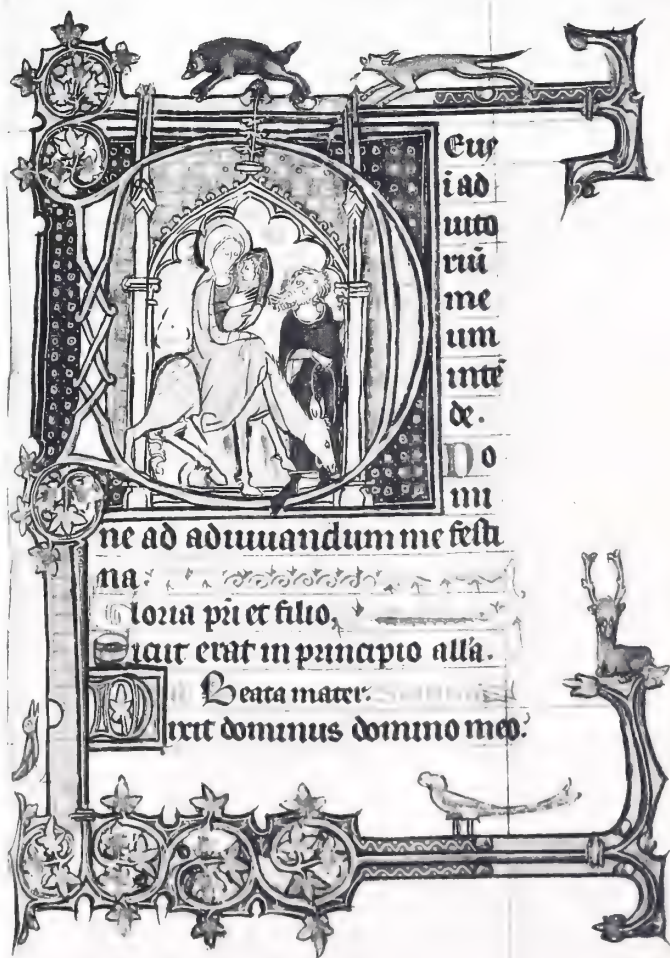 Deus
i ad
iuto
riū
me
um
intē
de.
Do
mi
ne ad adiuuandum me festi
na.
Gloria pri et filio,
Sicut erat in principio all'a.
Beata mater.
Dixit dominus domino meo.